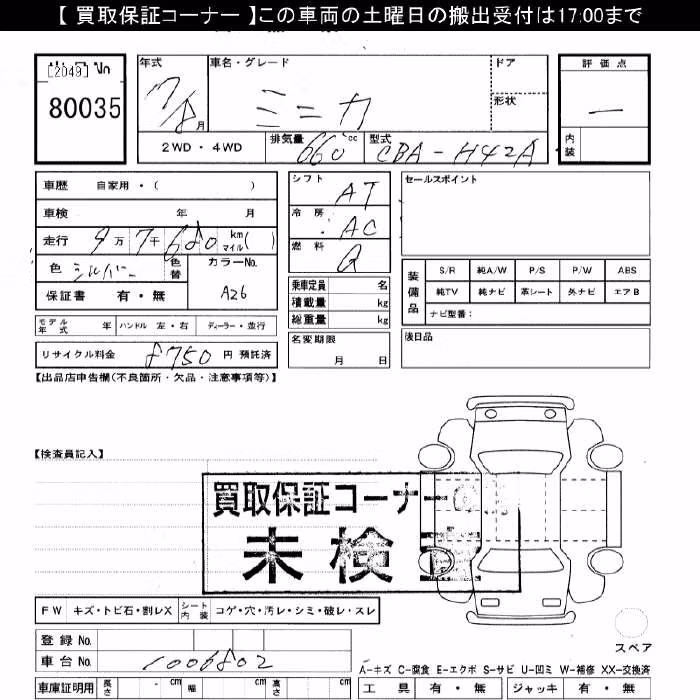 【 買取保証コーナー 】この車両の土曜日の搬出受付は17:00まで
[2049]
80035
年式
車名・グレード
ドア
評 価 点
7/8月
ミニカ
形状
一
内装
2WD ・ 4WD
排気量 660 cc
型式 CBA-H42A
車歴 自家用 ・ ( )
車検 年 月
走行 9万7千680 km マイル ( )
色 シルバー 色替
カラーNo. A26
保証書 有 ・ 無
シフト AT
冷房 AC
燃料 G
乗車定員 名
積載量 kg
総重量 kg
セールスポイント
装備品
S/R 純A/W P/S P/W ABS
純TV 純ナビ 革シート 外ナビ エアB
ナビ型番:
モデル年式 年 ハンドル 左・右 ディーラー・並行
名変期限 月 日
後日品
リサイクル料金 8750 円 預託済
【出品店申告欄(不良箇所・欠品・注意事項等)】
【検査員記入】
買取保証コーナー
未検
FW キズ・トビ石・割レX シート内装 コゲ・穴・汚レ・シミ・破レ・スレ
登録 No.
車台 No. 1006802
スペア
A-キズ C-腐食 E-エクボ S-サビ U-凹ミ W-補修 XX-交換済
車庫証明用 長さ cm 幅 cm 高さ cm
工 具 有 ・ 無 ジャッキ 有 ・ 無